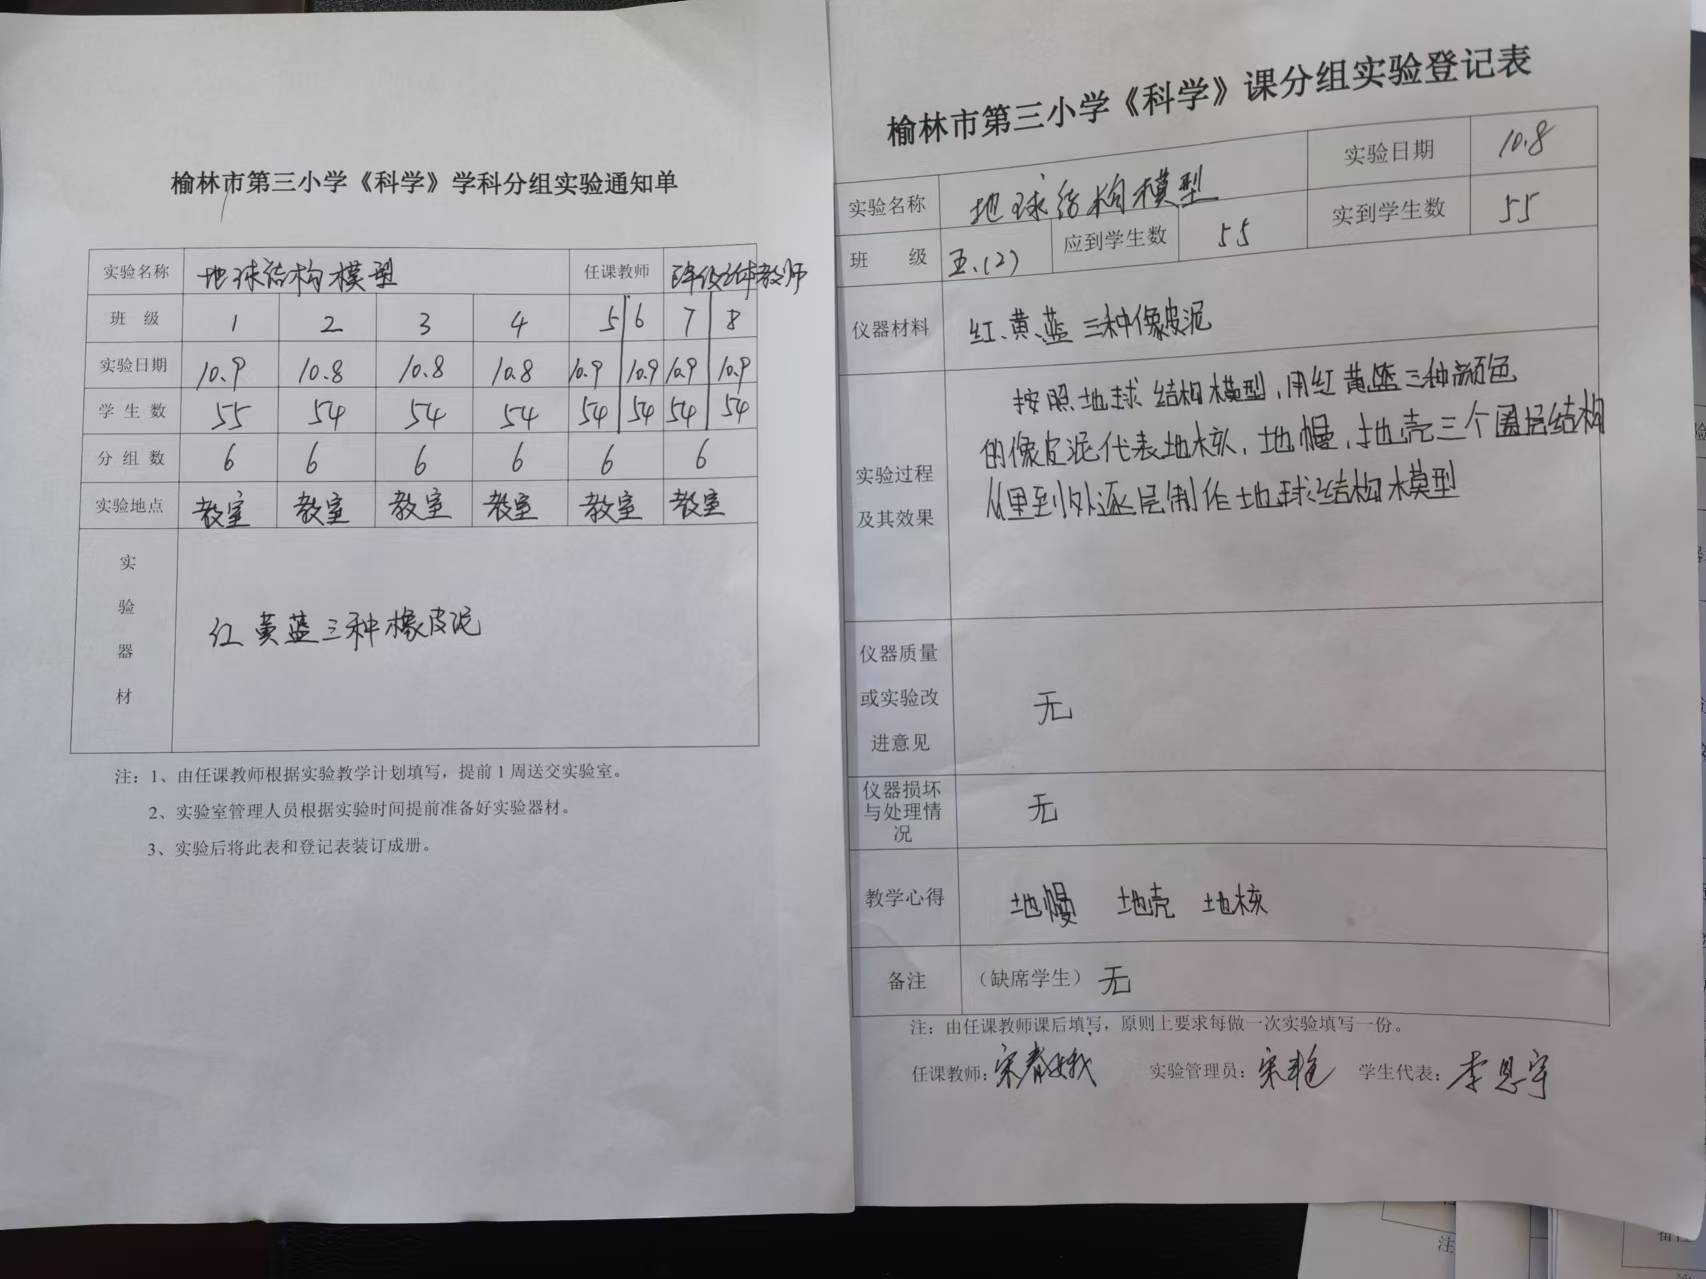 榆林市第三小学《科学》学科分组实验通知单
实验名称 地球结构模型 任课教师 教师
班 级 1 2 3 4 5 6 7 8
实验日期 10.9 10.8 10.8 10.8 10.9 10.9 10.9 10.9
学 生 数 55 54 54 54 54 54 54 54
分 组 数 6 6 6 6 6 6
实验地点 教室 教室 教室 教室 教室 教室
实
验
器
材
红黄蓝三种橡皮泥
注：1、由任课教师根据实验教学计划填写，提前1周送交实验室。
2、实验室管理人员根据实验时间提前准备好实验器材。
3、实验后将此表和登记表装订成册。
榆林市第三小学《科学》课分组实验登记表
实验名称 地球结构模型 实验日期 10.8
班 级 五.(2) 应到学生数 55 实到学生数 55
仪器材料 红、黄、蓝 三种像皮泥
实验过程
及其效果
按照地球结构模型,用红黄蓝三种颜色
的像皮泥代表地核、地幔、地壳三个圈层结构
从里到外逐层制作地球结构模型
仪器质量
或实验改
进意见
无
仪器损坏
与处理情
况
无
教学心得 地幔 地壳 地核
备注 （缺席学生）无
注：由任课教师课后填写，原则上要求每做一次实验填写一份。
任课教师：宋春娥 实验管理员：宋艳 学生代表：李思宇
注